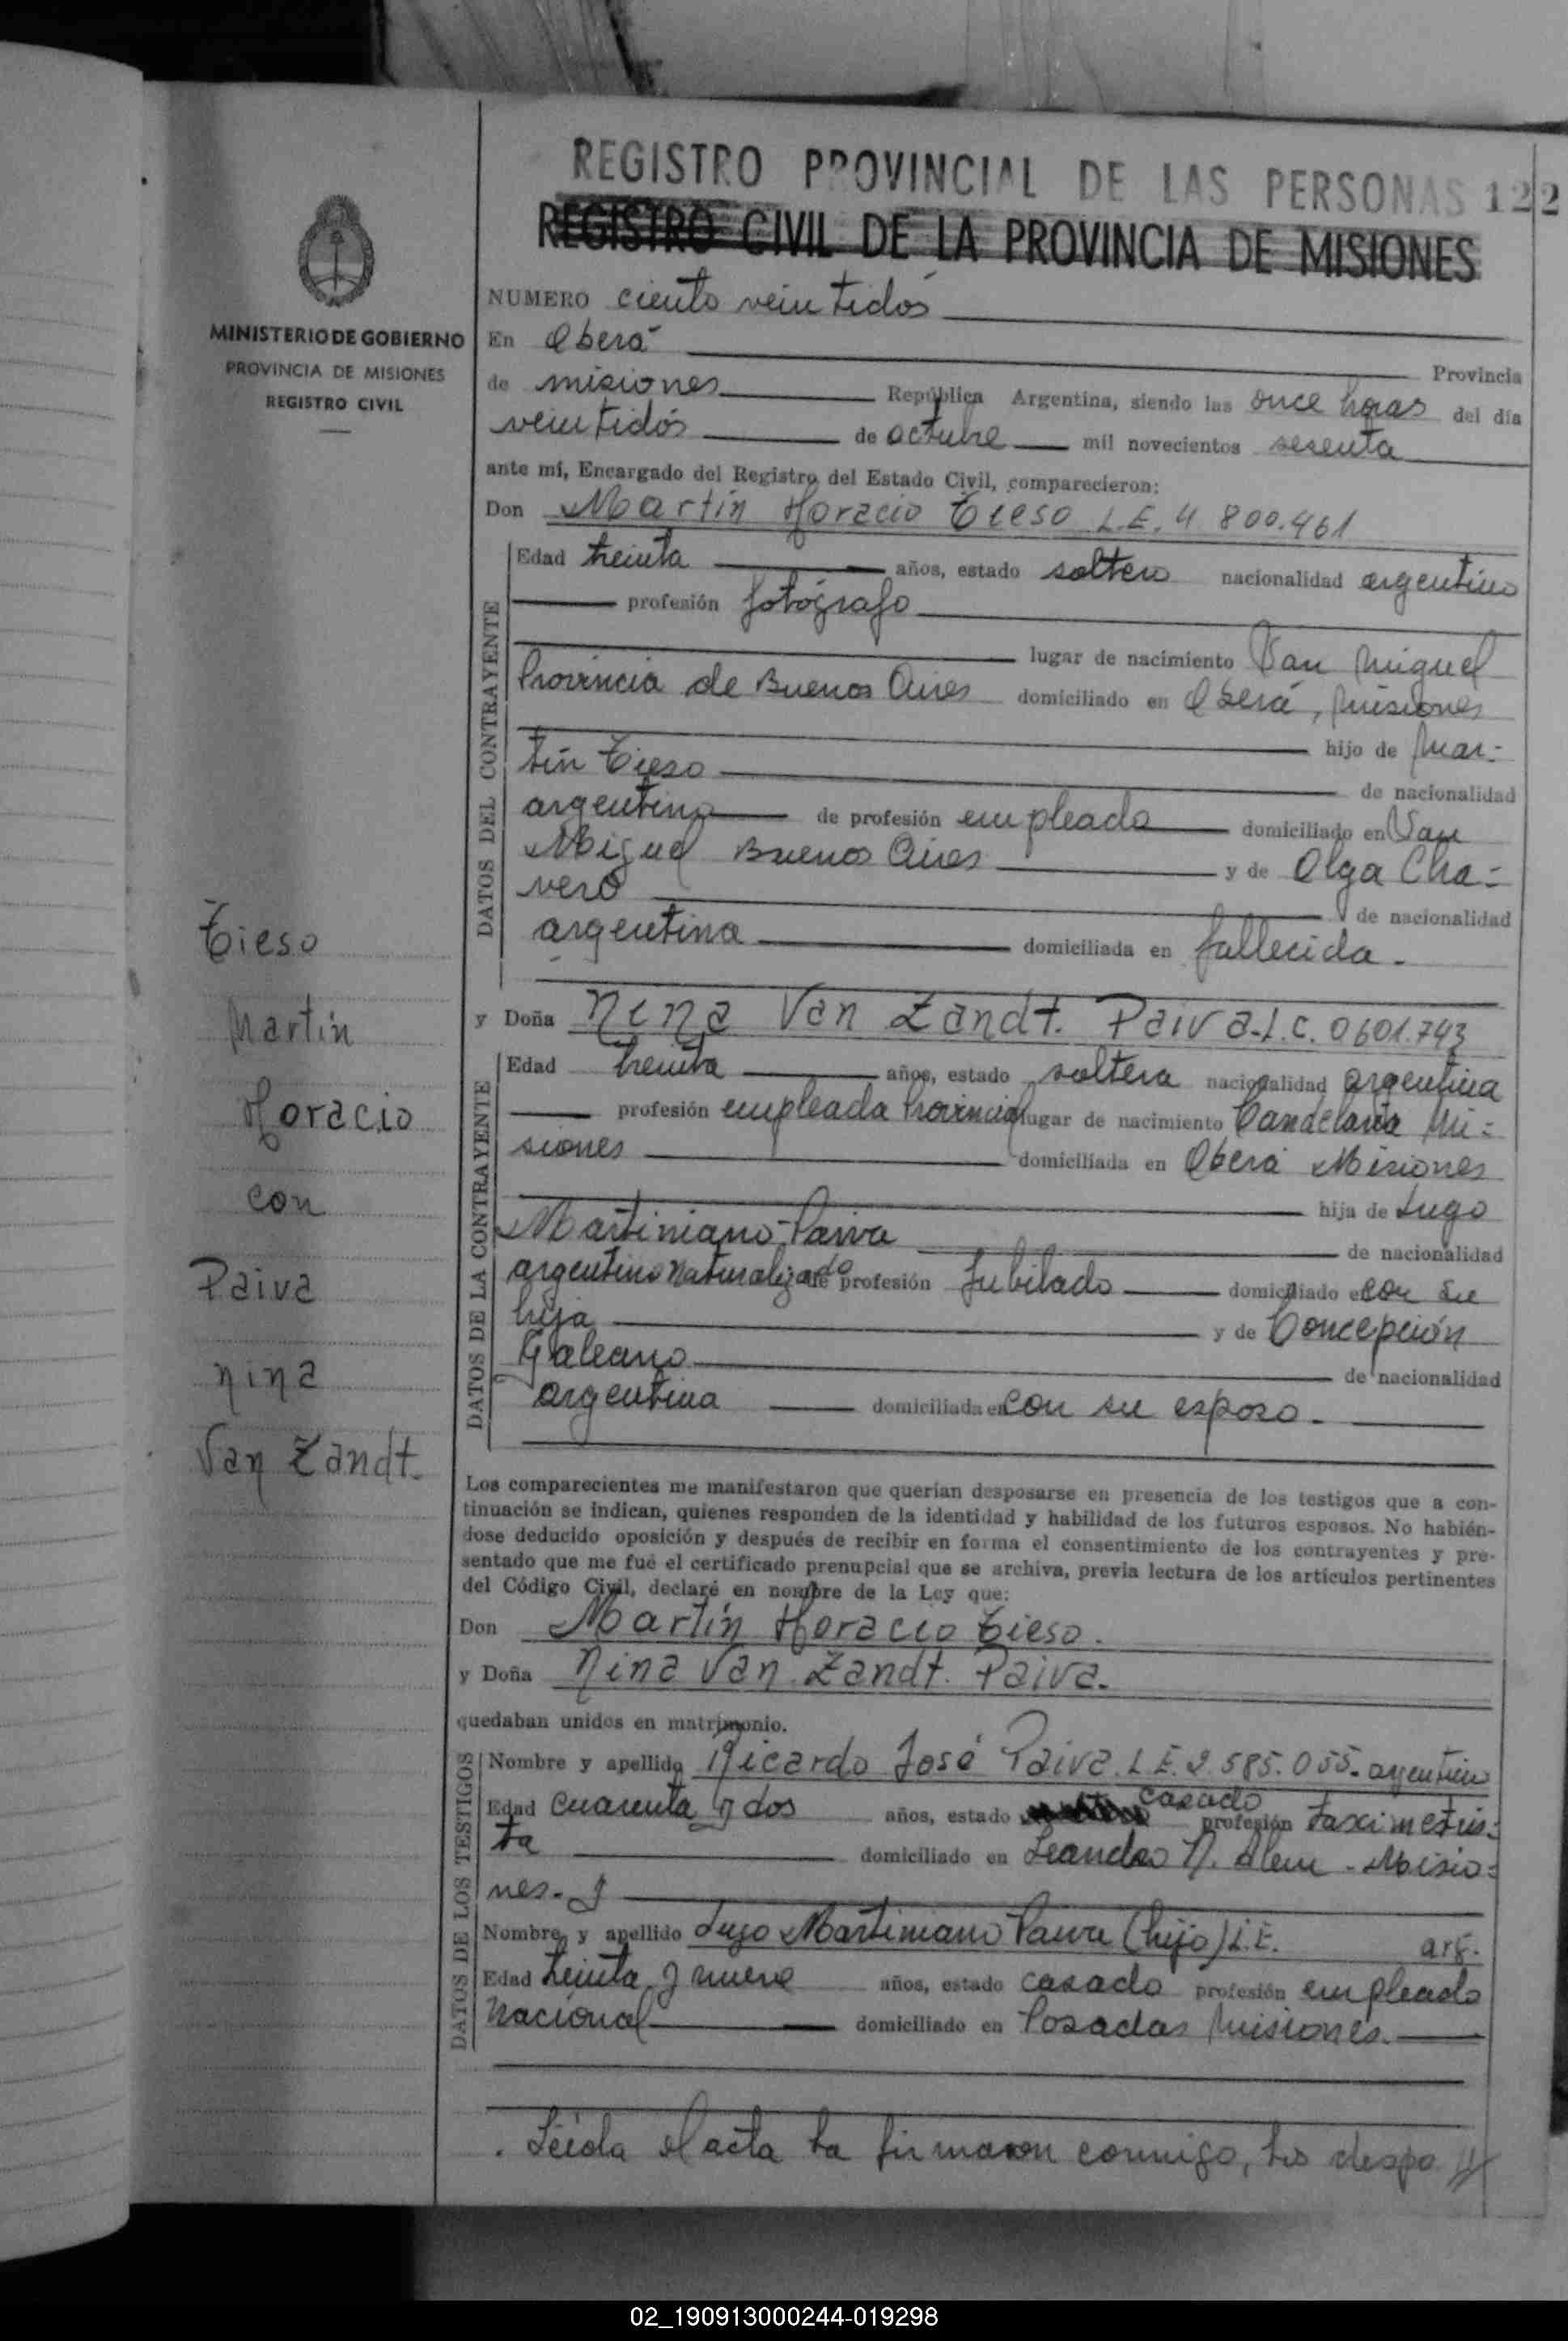 REGISTRO PROVINCIAL DE LAS PERSONAS 122
REGISTRO CIVIL DE LA PROVINCIA DE MISIONES
MINISTERIO DE GOBIERNO
PROVINCIA DE MISIONES
REGISTRO CIVIL
Tieso
Martín
Horacio
con
Paiva
Nina
Van Zandt.
NUMERO ciento veintidós
En Oberá Provincia
de misiones República Argentina, siendo las once horas del día
veintidós de octubre mil novecientos sesenta
ante mí, Encargado del Registro del Estado Civil, comparecieron:
Don Martín Horacio Tieso L.E. 4 800.461
DATOS DEL CONTRAYENTE
Edad treinta años, estado soltero nacionalidad argentino
profesión fotógrafo
lugar de nacimiento San Miguel
Provincia de Buenos Aires domiciliado en Oberá, Misiones
hijo de Mar-
tín Tieso de nacionalidad
argentino de profesión empleado domiciliado en San
Miguel Buenos Aires y de Olga Cha-
vero de nacionalidad
argentina domiciliada en fallecida.
y Doña Nina Van Zandt. Paiva-L.C. 0601.743
DATOS DE LA CONTRAYENTE
Edad treinta años, estado soltera nacionalidad argentina
profesión empleada Provincial lugar de nacimiento Candelaria Mi-
siones domiciliada en Oberá Misiones
hija de Lugo
Martiniano Paiva de nacionalidad
argentino naturalizado de profesión Jubilado domiciliado en con su
hija y de Concepción
Galeano de nacionalidad
argentina domiciliada en con su esposo.
Los comparecientes me manifestaron que querían desposarse en presencia de los testigos que a con-
tinuación se indican, quienes responden de la identidad y habilidad de los futuros esposos. No habién-
dose deducido oposición y después de recibir en forma el consentimiento de los contrayentes y pre-
sentado que me fué el certificado prenupcial que se archiva, previa lectura de los artículos pertinentes
del Código Civil, declaré en nombre de la Ley que:
Don Martín Horacio Tieso.
y Doña Nina Van Zandt. Paiva.
quedaban unidos en matrimonio.
DATOS DE LOS TESTIGOS
Nombre y apellido Ricardo José Paiva. L.E. 2.585.055. argentino
Edad cuarenta y dos años, estado casado profesión taximetris-
ta domiciliado en Leandro N. Alem - Misio-
nes. y
Nombre y apellido Lugo Martiniano Paiva (hijo) L.E. arg.
Edad treinta y nueve años, estado casado profesión empleado
nacional domiciliado en Posadas Misiones.
. Leída el acta la firmaron conmigo, los despo
02_190913000244-019298